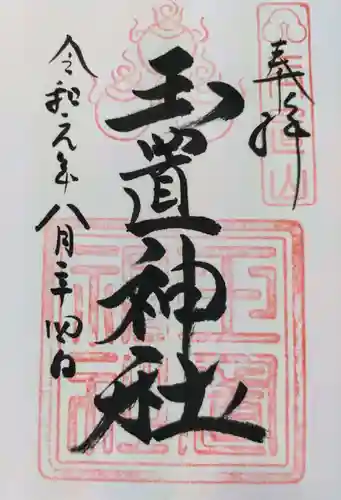 奉拝
玉置神社
令和元年八月二十四日
玉置神社